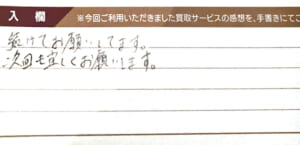 入 欄 ※今回ご利用いただきました買取サービスの感想を、手書きにてご
続けてお願いしてます。
次回も宜しくお願いします。